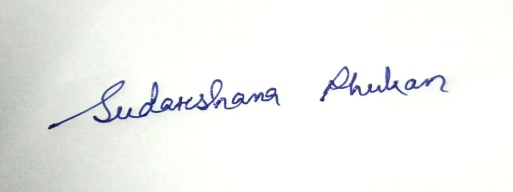 Sudarshana Phukan